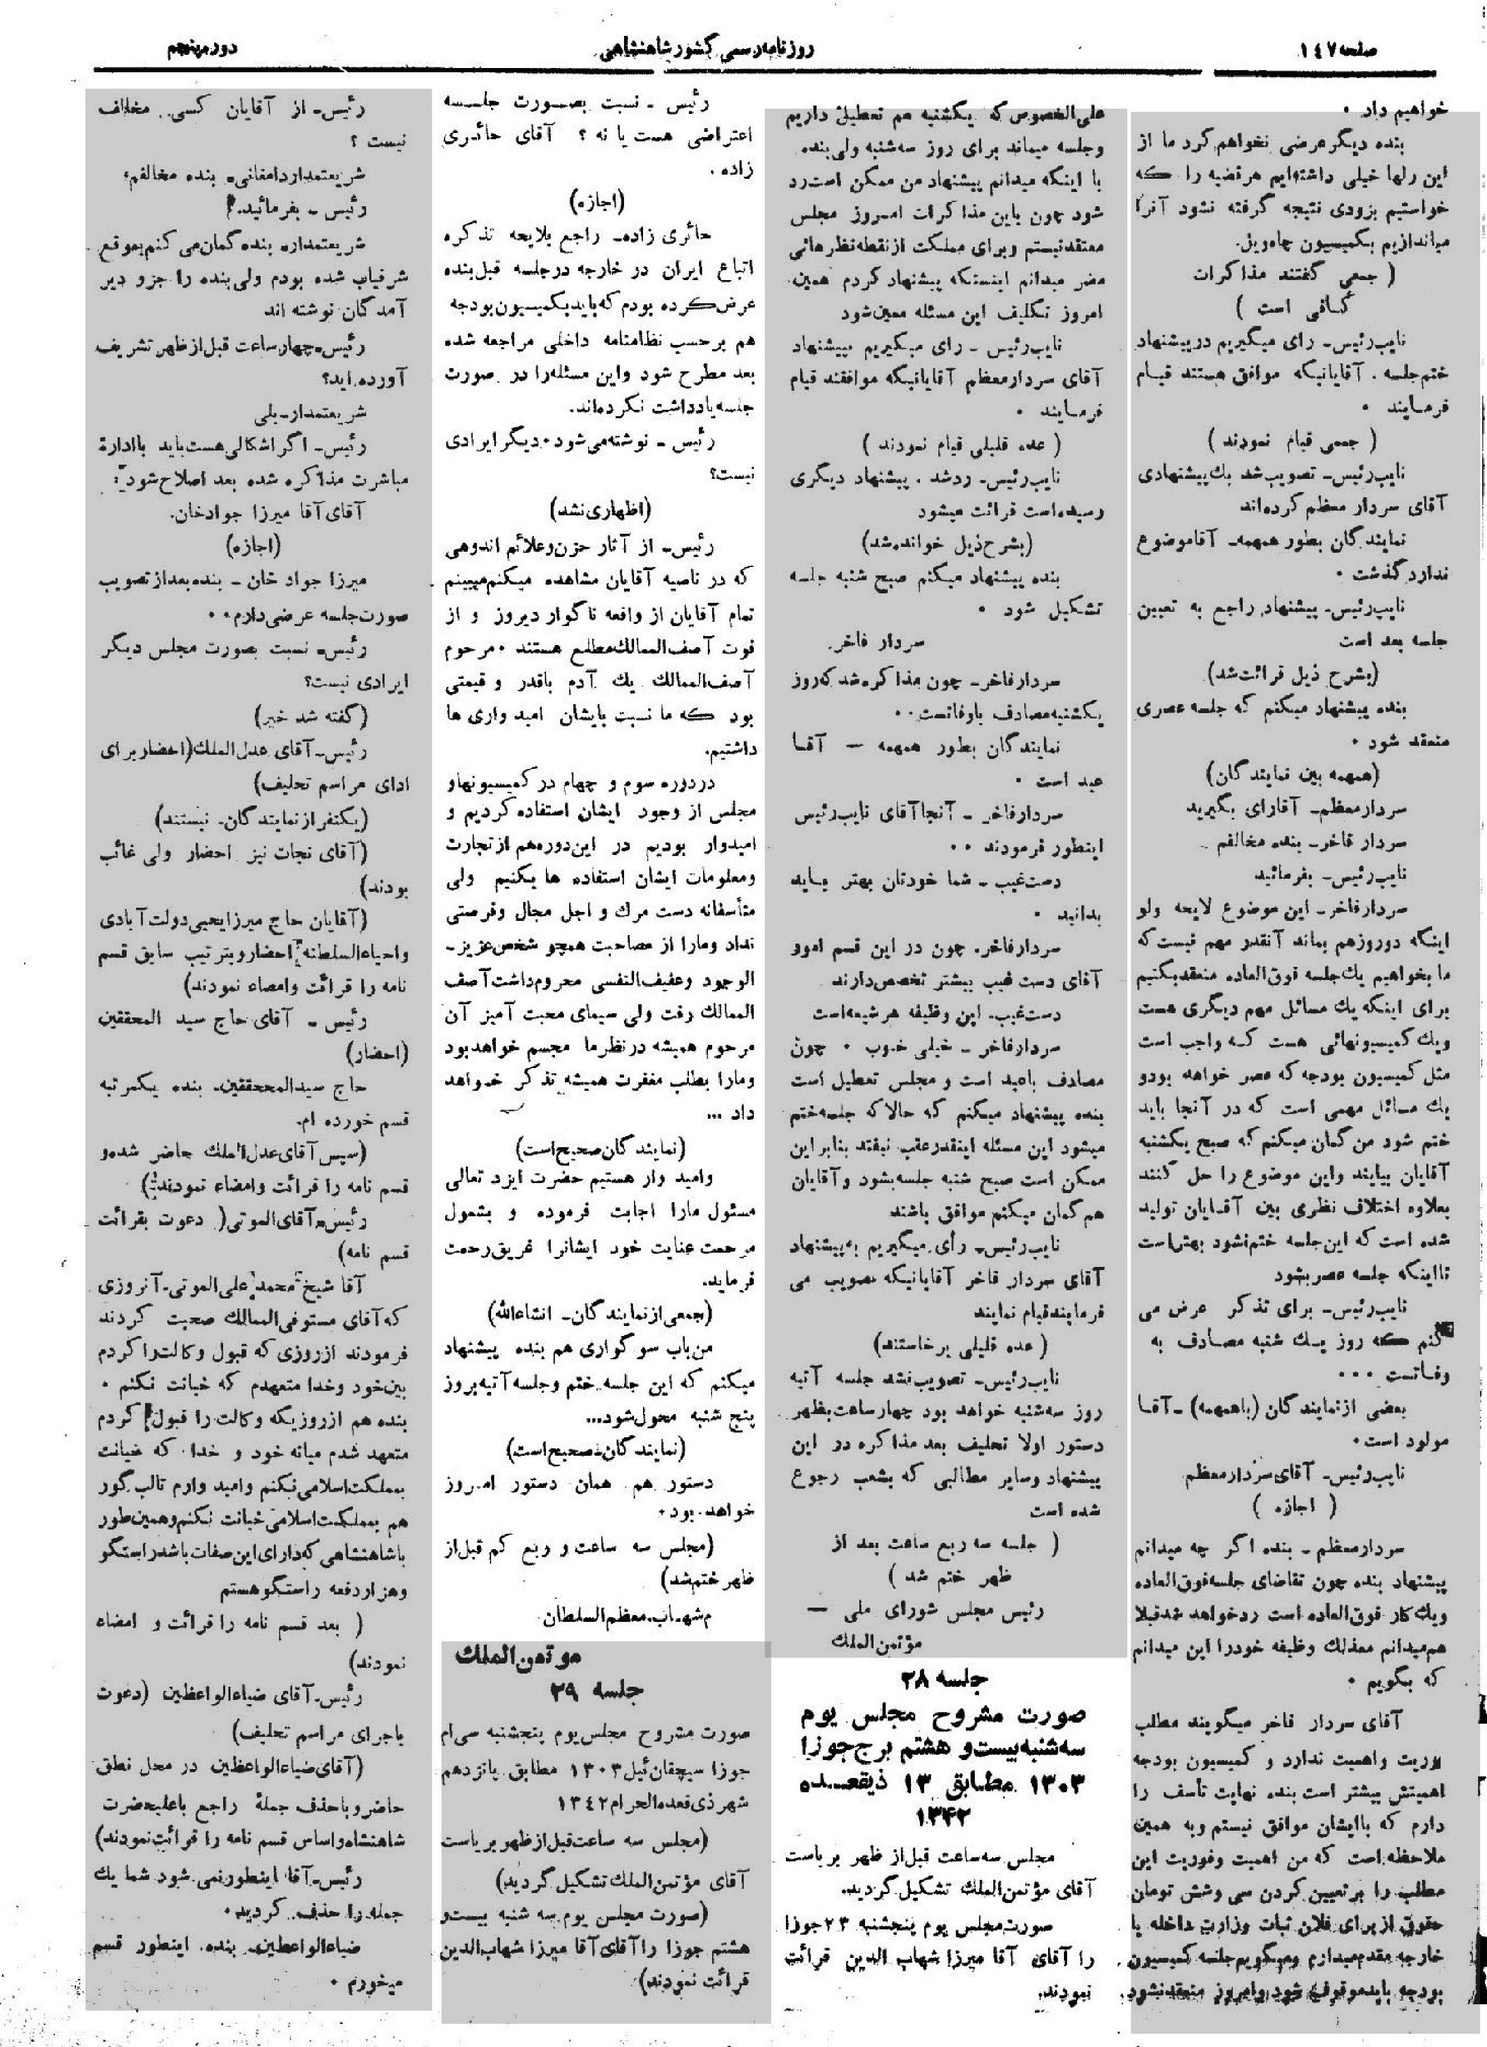 صفحه ۱۴۷
روزنامه رسمی کشور شاهنشاهی
دوره پنجم
خواهیم داد .
بنده دیگر عرضی نخواهم کرد ما از
این رلها خیلی داشته‌ایم هر قضیه را که
خواستیم بزودی نتیجه گرفته نشود آنرا
میاندازیم بکمیسیون چاه ویل.
( جمعی گفتند مذاکرات
کافی است )
نایب رئیس- رای میگیریم در پیشنهاد
ختم جلسه . آقایانیکه موافق هستند قیام
فرمایند .
( جمعی قیام نمودند )
نایب رئیس- تصویب شد یك پیشنهادی
آقای سردار معظم کرده‌اند
نمایندگان بطور همهمه- آقا موضوع
ندارد گذشت .
نایب رئیس- پیشنهاد راجع به تعیین
جلسه بعد است
(بشرح ذیل قرائت شد)
بنده پیشنهاد میکنم که جلسه عصری
منعقد شود .
(همهمه بین نمایندگان)
سردار معظم- آقا رای بگیرید
سردار فاخر- بنده مخالفم
نایب رئیس- بفرمائید
سردار فاخر- این موضوع لایحه ولو
اینکه دو روز هم بماند آنقدر مهم نیست که
ما بخواهیم یك جلسه فوق العاده منعقد بکنیم
برای اینکه یك مسائل مهم دیگری هست
ویك کمیسیونهائی هست که واجب است
مثل کمیسیون بودجه که عصر خواهد بود و
یك مسائل مهمی است که در آنجا باید
ختم شود من گمان میکنم که صبح یکشنبه
آقایان بیایند و این موضوع را حل کنند
بعلاوه اختلاف نظری بین آقایان تولید
شده است که این جلسه ختم نشود بهتر است
تا اینکه جلسه عصر بشود
نایب رئیس- برای تذکر عرض می
کنم که روز یك شنبه مصادف به
وفاتست ...
بعضی از نمایندگان (با همهمه) - آقا
مولود است.
نایب رئیس- آقای سردار معظم
( اجازه )
سردار معظم - بنده اگر چه میدانم
پیشنهاد بنده چون تقاضای جلسه فوق العاده
ویك کار فوق العاده است رد خواهد شد قبلا
هم میدانم معذلك وظیفه خود را این میدانم
که بگویم .
آقای سردار فاخر میگویند مطلب
فوریت واهمیت ندارد و کمیسیون بودجه
اهمیتش بیشتر است بنده نهایت تأسف را
دارم که با ایشان موافق نیستم و به همین
ملاحظه است که من اهمیت وفوریت این
مطلب را بر تعیین کردن سی وشش تومان
حقوق از برای فلان ثبات وزارت داخله یا
خارجه مقدم میدارم ومیگویم جلسه کمیسیون
بودجه باید موقوف شود وامروز منعقد نشود
علی الخصوص که یکشنبه هم تعطیل داریم
وجلسه میماند برای روز سه‌شنبه ولی بنده
با اینکه میدانم پیشنهاد من ممکن است رد
شود چون باین مذاکرات امروز مجلس
معتقد نیستم و برای مملکت از نقطه نظرهائی
مضر میدانم اینستکه پیشنهاد کردم همین
امروز تکلیف این مسئله معین شود
نایب رئیس - رای میگیریم بپیشنهاد
آقای سردار معظم آقایانیکه موافقند قیام
فرمایند .
( عده قلیلی قیام نمودند )
نایب رئیس- رد شد . پیشنهاد دیگری
رسیده است قرائت میشود
(بشرح ذیل خوانده شد)
بنده پیشنهاد میکنم صبح شنبه جلسه
تشکیل شود .
سردار فاخر.
سردار فاخر- چون مذاکره شد که روز
یکشنبه مصادف با وفاتست..
نمایندگان بطور همهمه - آقا
عید است .
سردار فاخر - آنجا آقای نایب رئیس
اینطور فرمودند ..
دست غیب - شما خودتان بهتر باید
بدانید .
سردار فاخر. چون در این قسم امور
آقای دست غیب بیشتر تخصص دارند
دست غیب. این وظیفه هر شیعه است
سردار فاخر - خیلی خوب . چون
مصادف با عید است و مجلس تعطیل است
بنده پیشنهاد میکنم که حالا که جلسه ختم
میشود این مسئله اینقدر عقب نیفتد بنابراین
ممکن است صبح شنبه جلسه بشود و آقایان
هم گمان میکنم موافق باشند
نایب رئیس- رأی میگیریم به پیشنهاد
آقای سردار فاخر آقایانیکه تصویب می
فرمایند قیام نمایند
( عده قلیلی برخاستند)
نایب رئیس- تصویب نشد جلسه آتیه
روز سه‌شنبه خواهد بود چهار ساعت بظهر
دستور اولا تحلیف بعد مذاکره در این
پیشنهاد وسایر مطالبی که بشعب رجوع
شده است
( جلسه سه ربع ساعت بعد از
ظهر ختم شد )
رئیس مجلس شورای ملی -
مؤتمن الملك
جلسه ۲۸
صورت مشروح مجلس یوم
سه شنبه بیست و هشتم برج جوزا
۱۳۰۳ مطابق ۱۳ ذیقعده
۱۳۴۲
مجلس سه ساعت قبل از ظهر بریاست
آقای مؤتمن الملك تشکیل گردید.
صورت مجلس یوم پنجشنبه ۲۳ جوزا
را آقای آقا میرزا شهاب الدین قرائت
نمودند.
رئیس - نسبت بصورت جلسه
اعتراضی هست یا نه ؟ آقای حائری
زاده .
(اجازه)
حائری زاده- راجع بلایحه تذکره
اتباع ایران در خارجه در جلسه قبل بنده
عرض کرده بودم که باید بکمیسیون بودجه
هم بر حسب نظامنامه داخلی مراجعه شده
بعد مطرح شود و این مسئله را در صورت
جلسه یادداشت نکرده‌اند.
رئیس - نوشته می شود. دیگر ایرادی
نیست؟
(اظهاری نشد)
رئیس- از آثار حزن و علائم اندوهی
که در ناصیه آقایان مشاهده میکنم میبینم
تمام آقایان از واقعه ناگوار دیروز و از
فوت آصف الممالك مطلع هستند . مرحوم
آصف الممالك یك آدم باقدر و قیمتی
بود که ما نسبت بایشان امیدواری ها
داشتیم.
در دوره سوم و چهام در کمیسیونها و
مجلس از وجود ایشان استفاده کردیم و
امیدوار بودیم در این دوره هم از تجارت
ومعلومات ایشان استفاده ها بکنیم ولی
متأسفانه دست مرك و اجل مجال وفرصتی
نداد ومارا از مصاحبت همچو شخص عزیز-
الوجود وعفیف النفسی محروم داشت آصف
الممالك رفت ولی سیمای محبت آمیز آن
مرحوم همیشه در نظر ما مجسم خواهد بود
ومارا بطلب مغفرت همیشه تذکر خواهد
داد ...
(نمایندگان صحیح است)
وامید وار هستیم حضرت ایزد تعالی
مسئول مارا اجابت فرموده و بشمول
مرحمت عنایت خود ایشانرا غریق رحمت
فرماید.
(جمعی از نمایندگان- انشاءالله)
من باب سوگواری هم بنده پیشنهاد
میکنم که این جلسه ختم وجلسه آتیه بروز
پنج شنبه محول شود...
(نمایندگان- صحیح است)
دستور هم همان دستور امروز
خواهد بود.
(مجلس سه ساعت و ربع کم قبل از
ظهر ختم شد)
م شهاب. معظم السلطان
موتمن الملك
جلسه ۲۹
صورت مشروح مجلس یوم پنجشنبه سی‌ام
جوزا سیچقان ئیل ۱۳۰۳ مطابق پانزدهم
شهر ذی قعده الحرام ۱۳۴۲
(مجلس سه ساعت قبل از ظهر بریاست
آقای مؤتمن الملك تشکیل گردید)
(صورت مجلس یوم سه شنبه بیست و
هشتم جوزا را آقای آقا میرزا شهاب الدین
قرائت نمودند)
رئیس- از آقایان کسی مخالف
نیست ؟
شریعتمدار دامغانی- بنده مخالفم،
رئیس - بفرمائید.
شریعتمدار- بنده گمان می کنم بموقع
شرفیاب شده بودم ولی بنده را جزو دیر
آمدگان نوشته اند
رئیس- چهار ساعت قبل از ظهر تشریف
آورده اید؟
شریعتمدار- بلی
رئیس- اگر اشکالی هست باید با ادارۀ
مباشرت مذاکره شده بعد اصلاح شود:
آقای آقا میرزا جوادخان.
(اجازه)
میرزا جواد خان - بنده بعد از تصویب
صورت جلسه عرضی دارم..
رئیس- نسبت بصورت مجلس دیگر
ایرادی نیست؟
(گفته شد خیر)
رئیس- آقای عدل الملك (احضار برای
ادای مراسم تحلیف)
(یکنفر از نمایندگان- نیستند)
(آقای نجات نیز احضار ولی غائب
بودند)
(آقایان حاج میرزا یحیی دولت آبادی
و احیاء السلطنه احضار و بترتیب سابق قسم
نامه را قرائت وامضاء نمودند)
رئیس - آقای حاج سید المحققین
(احضار)
حاج سید المححققین- بنده یکمرتبه
قسم خورده ام.
(سپس آقای عدل الملك حاضر شده و
قسم نامه را قرائت وامضاء نمودند)
رئیس- آقای الموتی( دعوت بقرائت
قسم نامه)
آقا شیخ محمد علی الموتی- آنروزی
که آقای مستوفی الممالك صحبت کردند
فرمودند از روزی که قبول وکالت را کردم
بین خود وخدا متعهدم که خیانت نکنم .
بنده هم از روزیکه وکالت را قبول کردم
متعهد شدم میانه خود و خدا که خیانت
بمملکت اسلامی نکنم وامید وارم تا لب گور
هم بمملکت اسلامی خیانت نکنم وهمین طور
با شاهنشاهی که دارای این صفات باشد راستگو
وهزار دفعه راستگو هستم
( بعد قسم نامه را قرائت و امضاء
نمودند)
رئیس- آقای ضیاء الواعظین (دعوت
باجرای مراسم تحلیف)
(آقای ضیاء الواعظین در محل نطق
حاضر و با حذف جملۀ راجع باعلیحضرت
شاهنشاه و اساس قسم نامه را قرائت نمودند)
رئیس- آقا اینطور نمی شود شما یك
جمله را حذف کردید.
ضیاء الواعظین- بنده. اینطور قسم
میخورم .